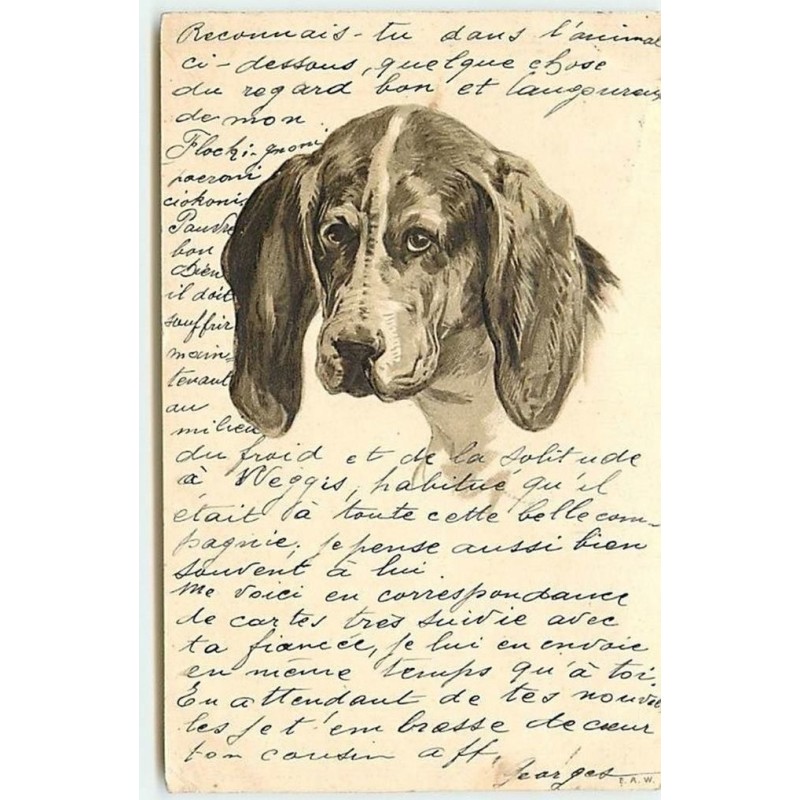 Reconnais-tu dans l'animal
ci-dessous, quelque chose
du regard bon et langoureux
de mon
Flocki-gnoni
pacroni
ciokoni.
Pauvre
bon
chien
il doit
souffrir
main=
tenant
au
milieu
du froid et de la solitude
à Weggis, habitué qu'il
était à toute cette belle com-
pagnie; je pense aussi bien
souvent à lui.
Me voici en correspondance
de cartes très suivie avec
ta fiancée, je lui en envoie
en même temps qu'à toi.
En attendant de tes nouvel
les je t'embrasse de cœur
ton cousin aff.
Georges
F. A. W.